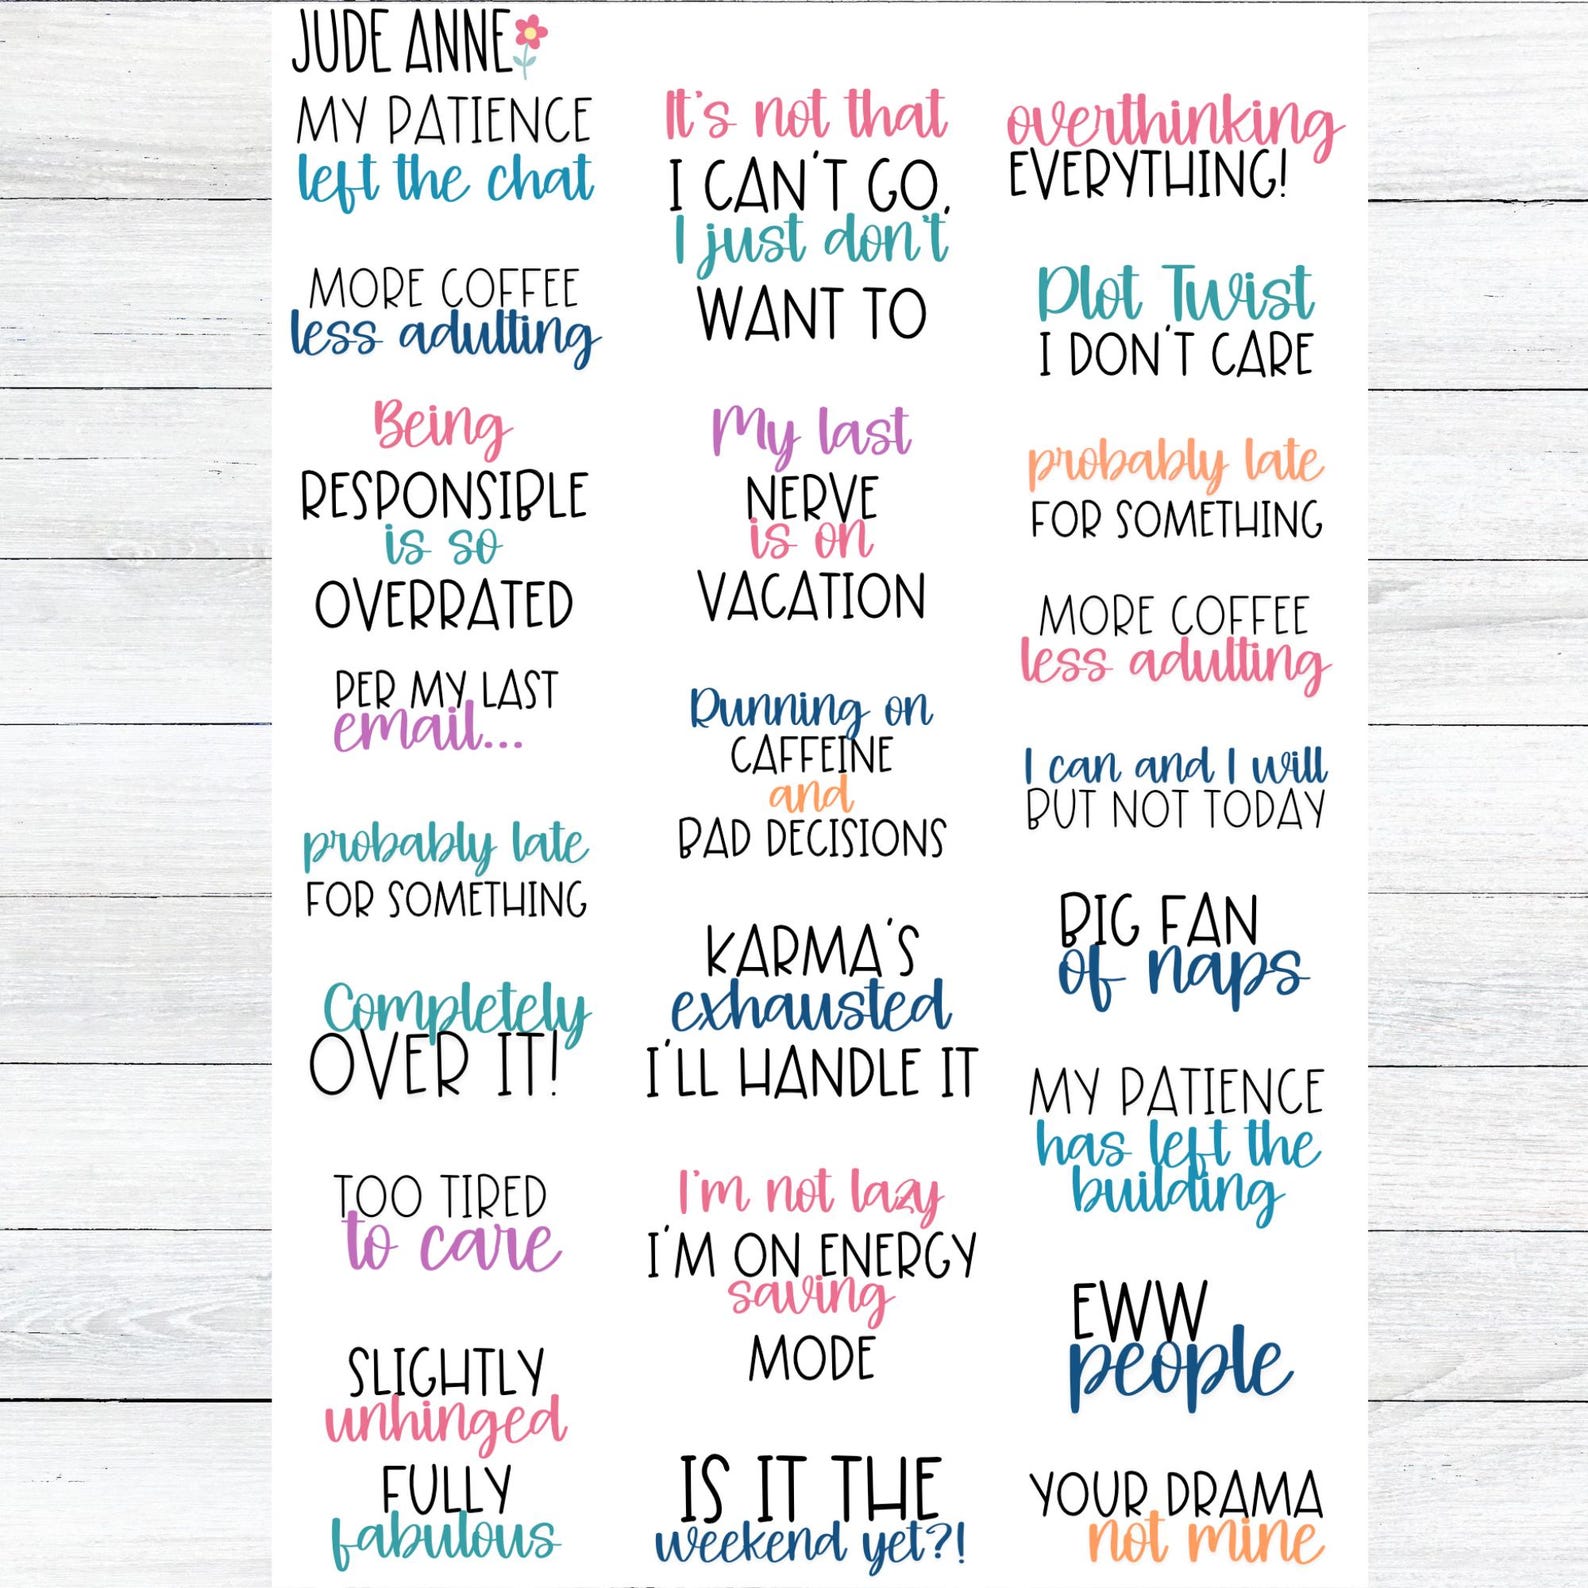 JUDE ANNE
MY PATIENCE
left the chat
MORE COFFEE
less adulting
Being
RESPONSIBLE
is so
OVERRATED
PER MY LAST
email...
probably late
FOR SOMETHING
Completely
OVER IT!
TOO TIRED
to care
SLIGHTLY
unhinged
FULLY
fabulous
It's not that
I CAN'T GO,
I just don't
WANT TO
My last
NERVE
is on
VACATION
Running on
CAFFEINE
and
BAD DECISIONS
KARMA'S
exhausted
I'LL HANDLE IT
I'm not lazy
I'M ON ENERGY
saving
MODE
IS IT THE
weekend yet?!
overthinking
EVERYTHING!
Plot Twist
I DON'T CARE
probably late
FOR SOMETHING
MORE COFFEE
less adulting
I can and I will
BUT NOT TODAY
BIG FAN
of naps
MY PATIENCE
has left the
building
EWW
people
YOUR DRAMA
not mine